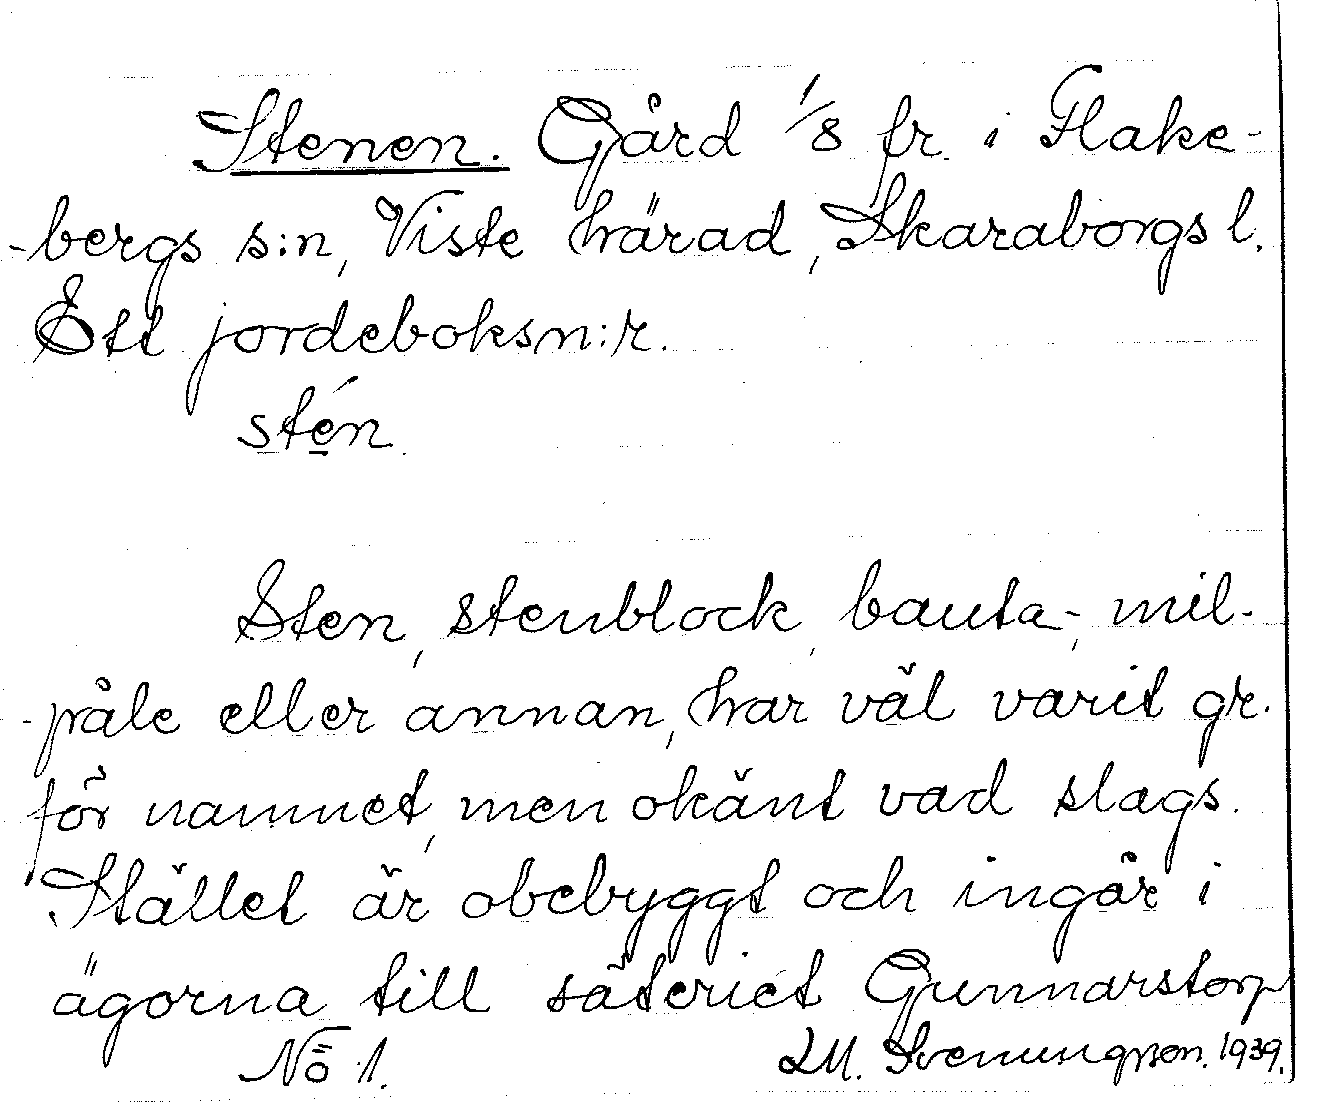 Stenen. Gård 1/8 fr. i Flake-
-bergs s:n, Viste härad, Skaraborgs l.
Ett jordeboksn:r.
stén.
Sten, stenblock, bauta-, mil-
-påle eller annan, har väl varit gr.
för namnet, men okänt vad slags.
Stället är obebyggt och ingår i
ägorna till säteriet Gunnarstorp
No 1. LM. Svenungsson. 1939.